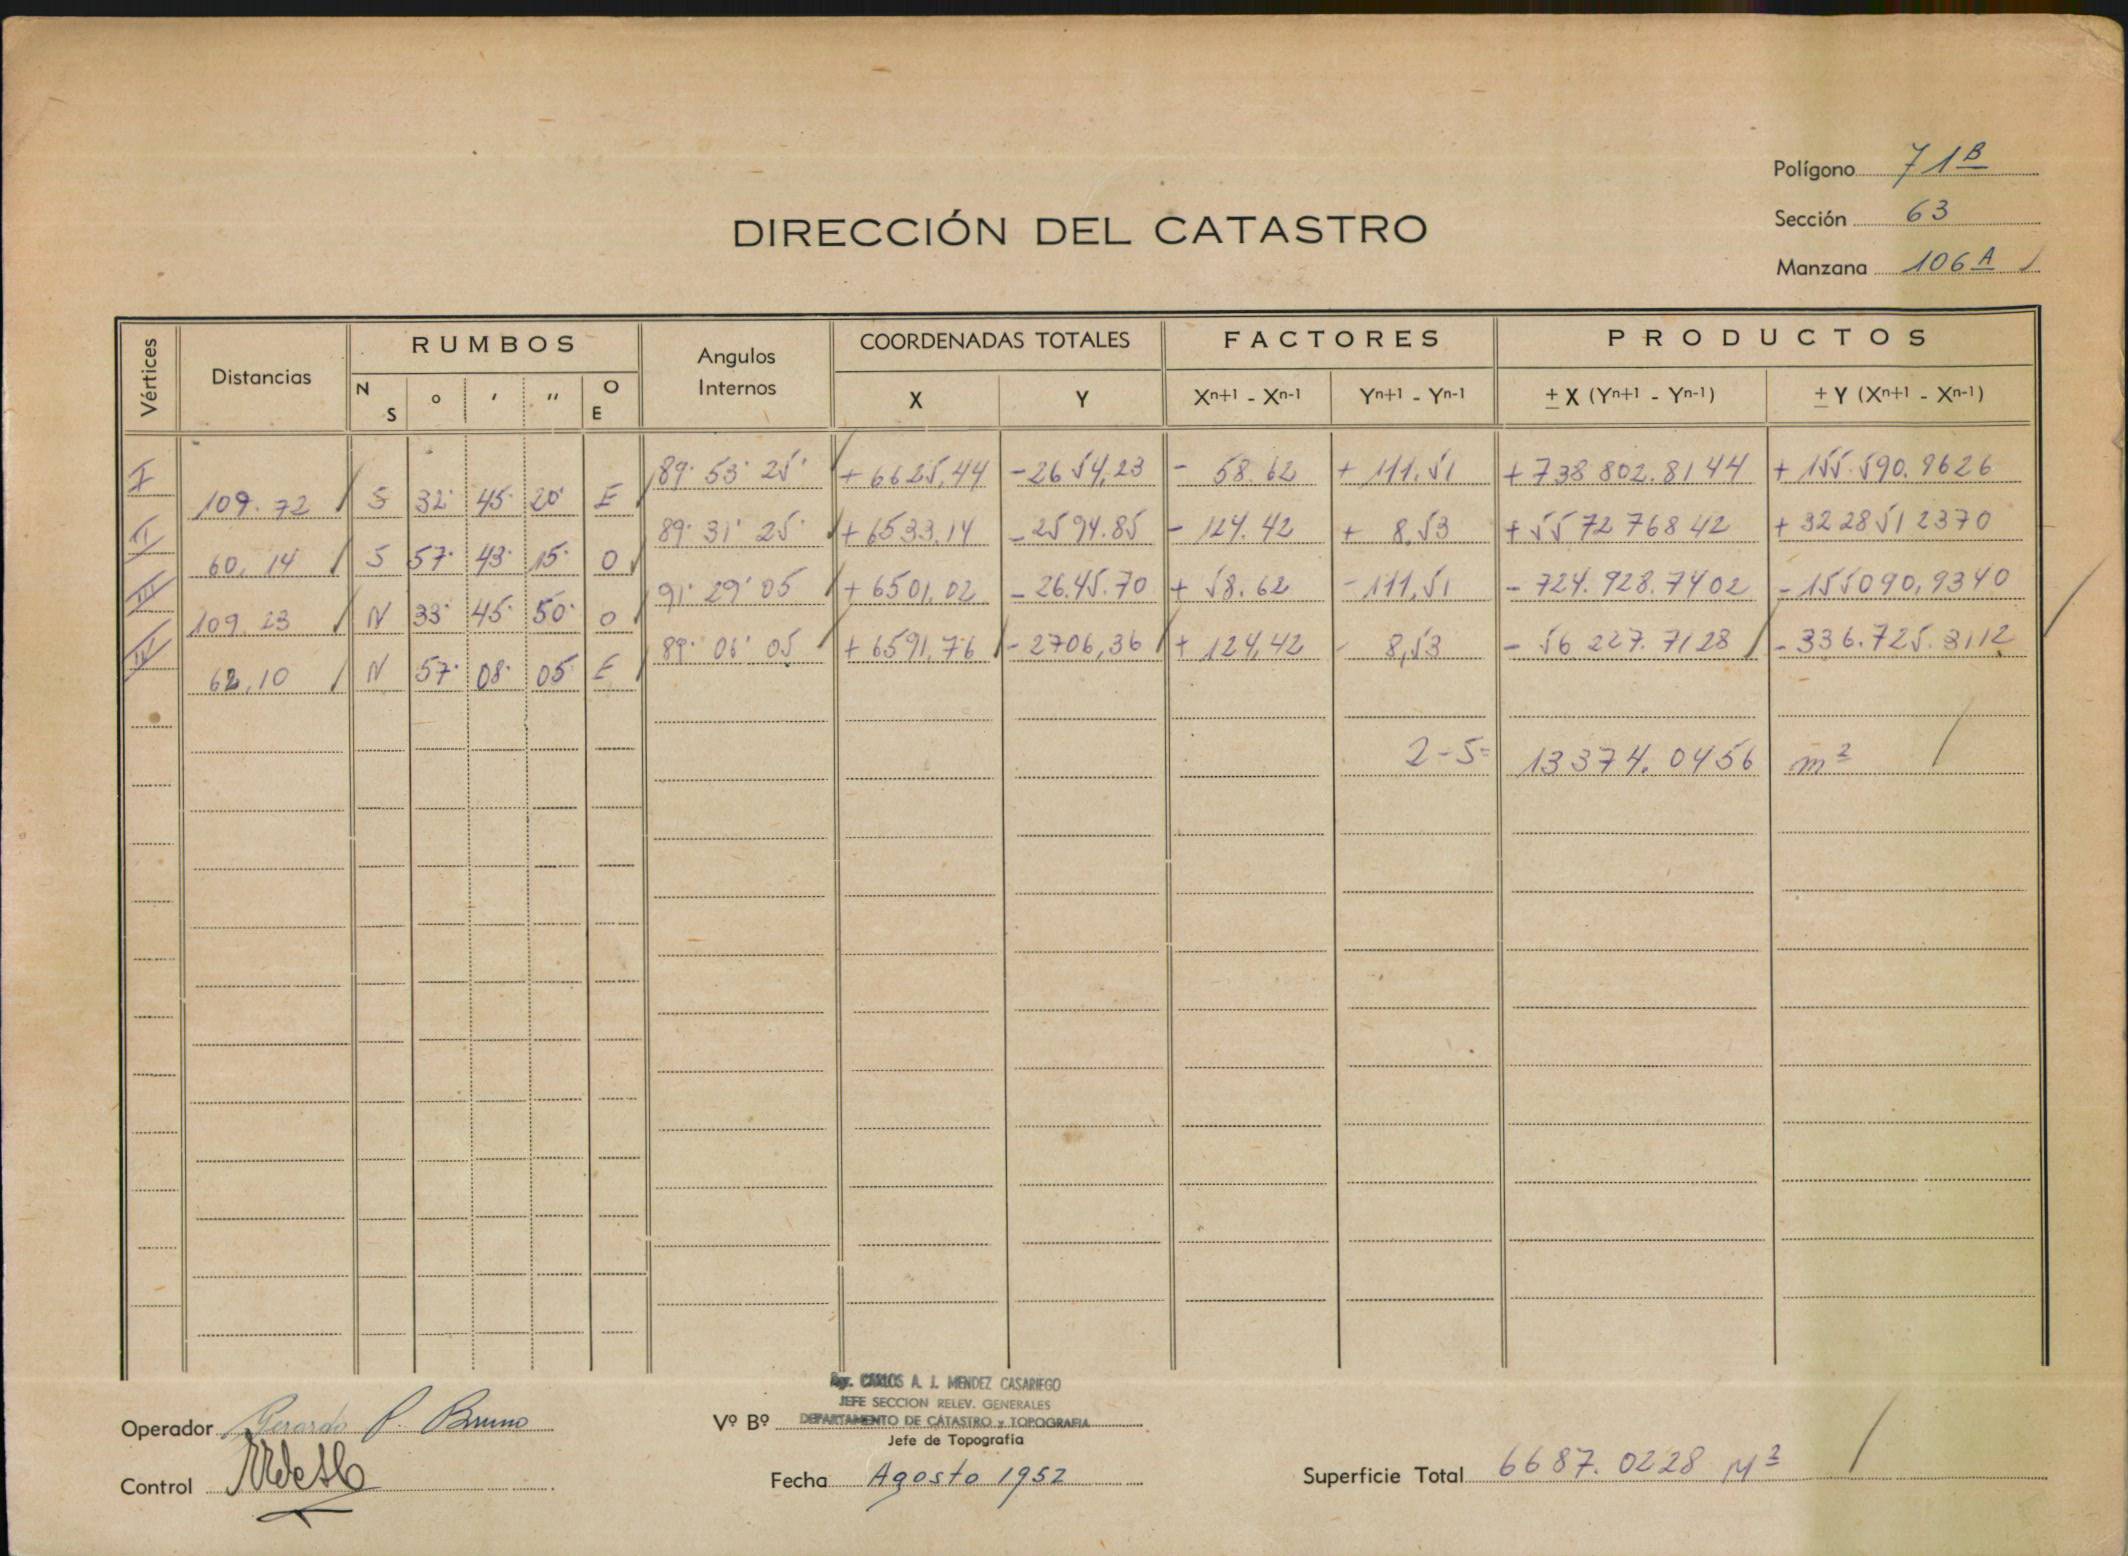 Polígono 71B
Sección 63
Manzana 106A
DIRECCIÓN DEL CATASTRO
Vértices Distancias RUMBOS Angulos Internos COORDENADAS TOTALES FACTORES PRODUCTOS
N S ° ' " O E X Y Xn+1 - Xn-1 Yn+1 - Yn-1 ± X (Yn+1 - Yn-1) ± Y (Xn+1 - Xn-1)
I 89° 53' 25" + 6625,44 - 2654,23 - 58.62 + 111.51 + 738 802.8144 + 155.590.9626
109.72 S 32° 45' 20" E
II 89° 31' 25" + 6533.14 - 2594.85 - 124.42 + 8,53 + 55 72 768 42 + 322851 2370
60,14 S 57° 43' 15" O
III 91° 29' 05 + 6501,02 - 26.45.70 + 58.62 - 111,51 - 724.928.7402 - 155090,9340
109.23 N 33° 45' 50" O
IV 89° 06' 05 + 6591,76 - 2706,36 + 124,42 - 8,53 - 56 227.7128 - 336.725.3112
62,10 N 57° 08' 05 E
2-S= 13374.0456 m2
Operador Gerardo P. Bruno
Agr. CARLOS A. J. MENDEZ CASARIEGO
JEFE SECCION RELEV. GENERALES
Vº Bº DEPARTAMENTO DE CATASTRO y TOPOGRAFIA
Jefe de Topografía
Control
Fecha Agosto 1952
Superficie Total 6687.0228 M2